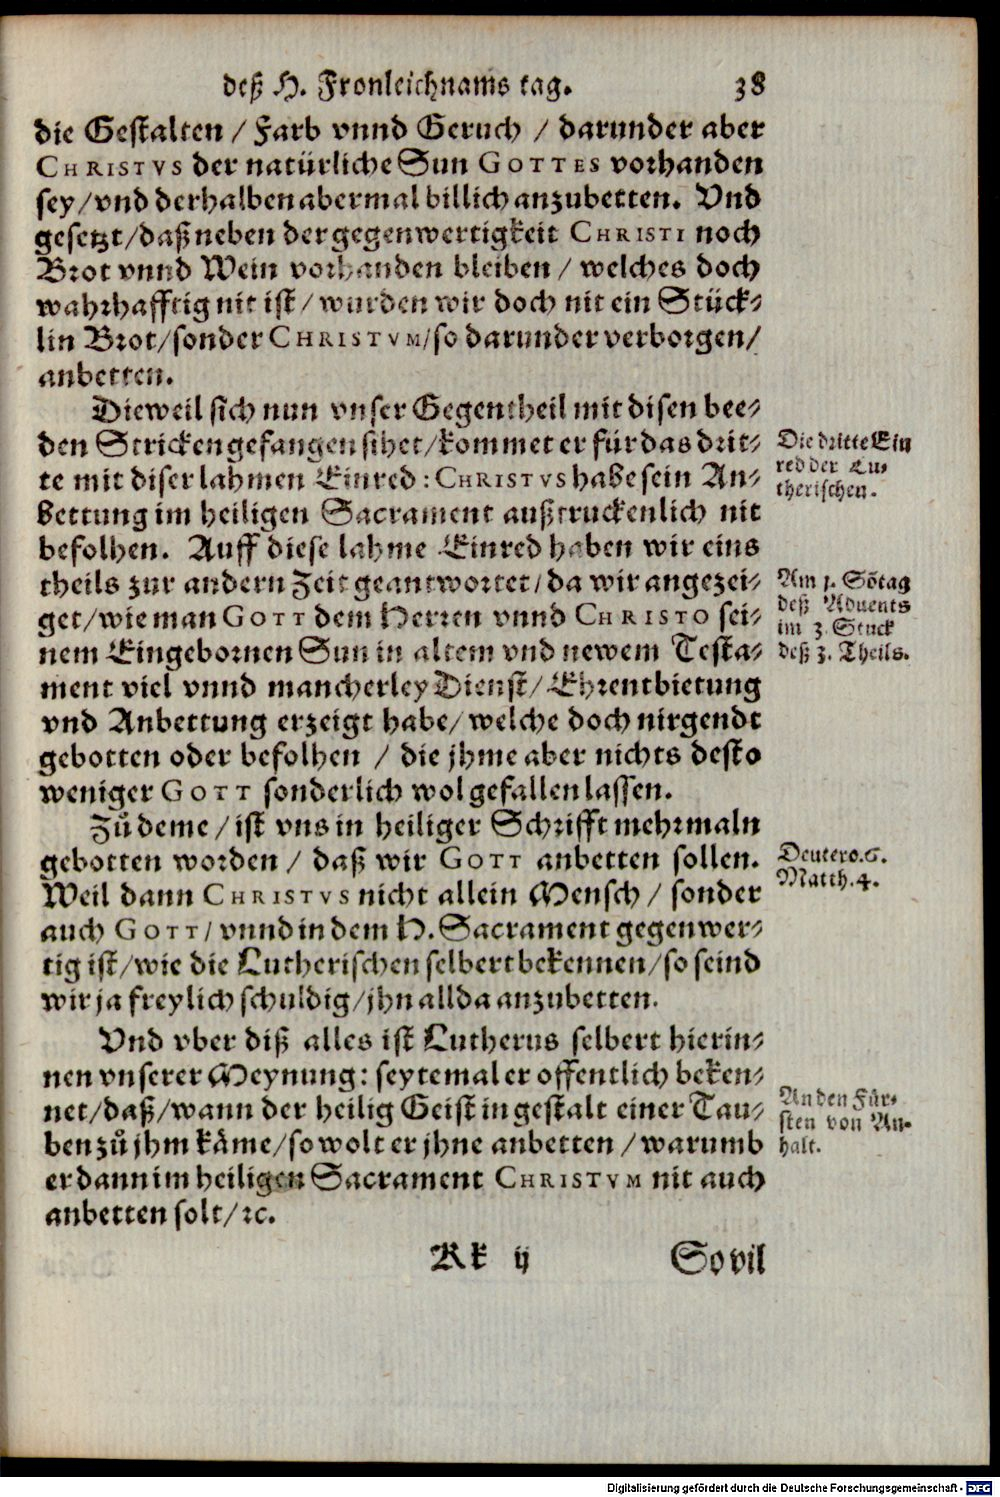 deß H. Fronleichnams tag. 38
die Gestalten / Farb vnnd Geruch / darunder aber
CHRISTVS der natürliche Sun GOTTES vorhanden
sey/vnd derhalben abermal billich anzubetten. Vnd
gesetzt/daß neben der gegenwertigkeit CHRISTI noch
Brot vnnd Wein vorhanden bleiben / welches doch
wahrhafftig nit ist/wurden wir doch nit ein Stück-
lin Brot/sonder CHRISTVM/so darunder verborgen/
anbetten.
Dieweil sich nun vnser Gegentheil mit disen bee-
den Stricken gefangen sihet/kommet er für das drit-
te mit diser lahmen Einred: CHRISTVS habe sein An-
bettung im heiligen Sacrament außtruckenlich nit
befolhen. Auff diese lahme Einred haben wir eins
theils zur andern Zeit geantwortet/da wir angezei-
get/wie man GOTT dem Herren vnnd CHRISTO sei-
nem Eingebornen Sun in altem vnd newem Testa-
ment viel vnnd mancherley Dienst/Ehrentbietung
vnd Anbettung erzeigt habe/welche doch nirgendt
gebotten oder befolhen / die jhme aber nichts desto
weniger GOTT sonderlich wol gefallen lassen.
Zů deme/ist vns in heiliger Schrifft mehrmaln
gebotten worden / daß wir GOTT anbetten sollen.
Weil dann CHRISTVS nicht allein Mensch / sonder
auch GOTT/vnnd in dem H. Sacrament gegenwer-
tig ist/wie die Lutherischen selbert bekennen/so seind
wir ja freylich schuldig/jhn allda anzubetten.
Vnd vber diß alles ist Lutherus selbert hierin-
nen vnserer Meynung: seytemal er offentlich beken-
net/daß/wann der heilig Geist in gestalt einer Tau-
ben zů jhm käme/so wolt er jhne anbetten / warumb
er dann im heiligen Sacrament CHRISTVM nit auch
anbetten solt/ꝛc.
Kk ij Sovil
Die dritte Ein
red der Lu-
therischen.
Am 1. Sõtag
deß Aduents
im 3. Stuck
deß 3. Theils.
Deutero.6.
Matth.4.
An den Für-
sten von An-
halt.
Digitalisierung gefördert durch die Deutsche Forschungsgemeinschaft - DFG